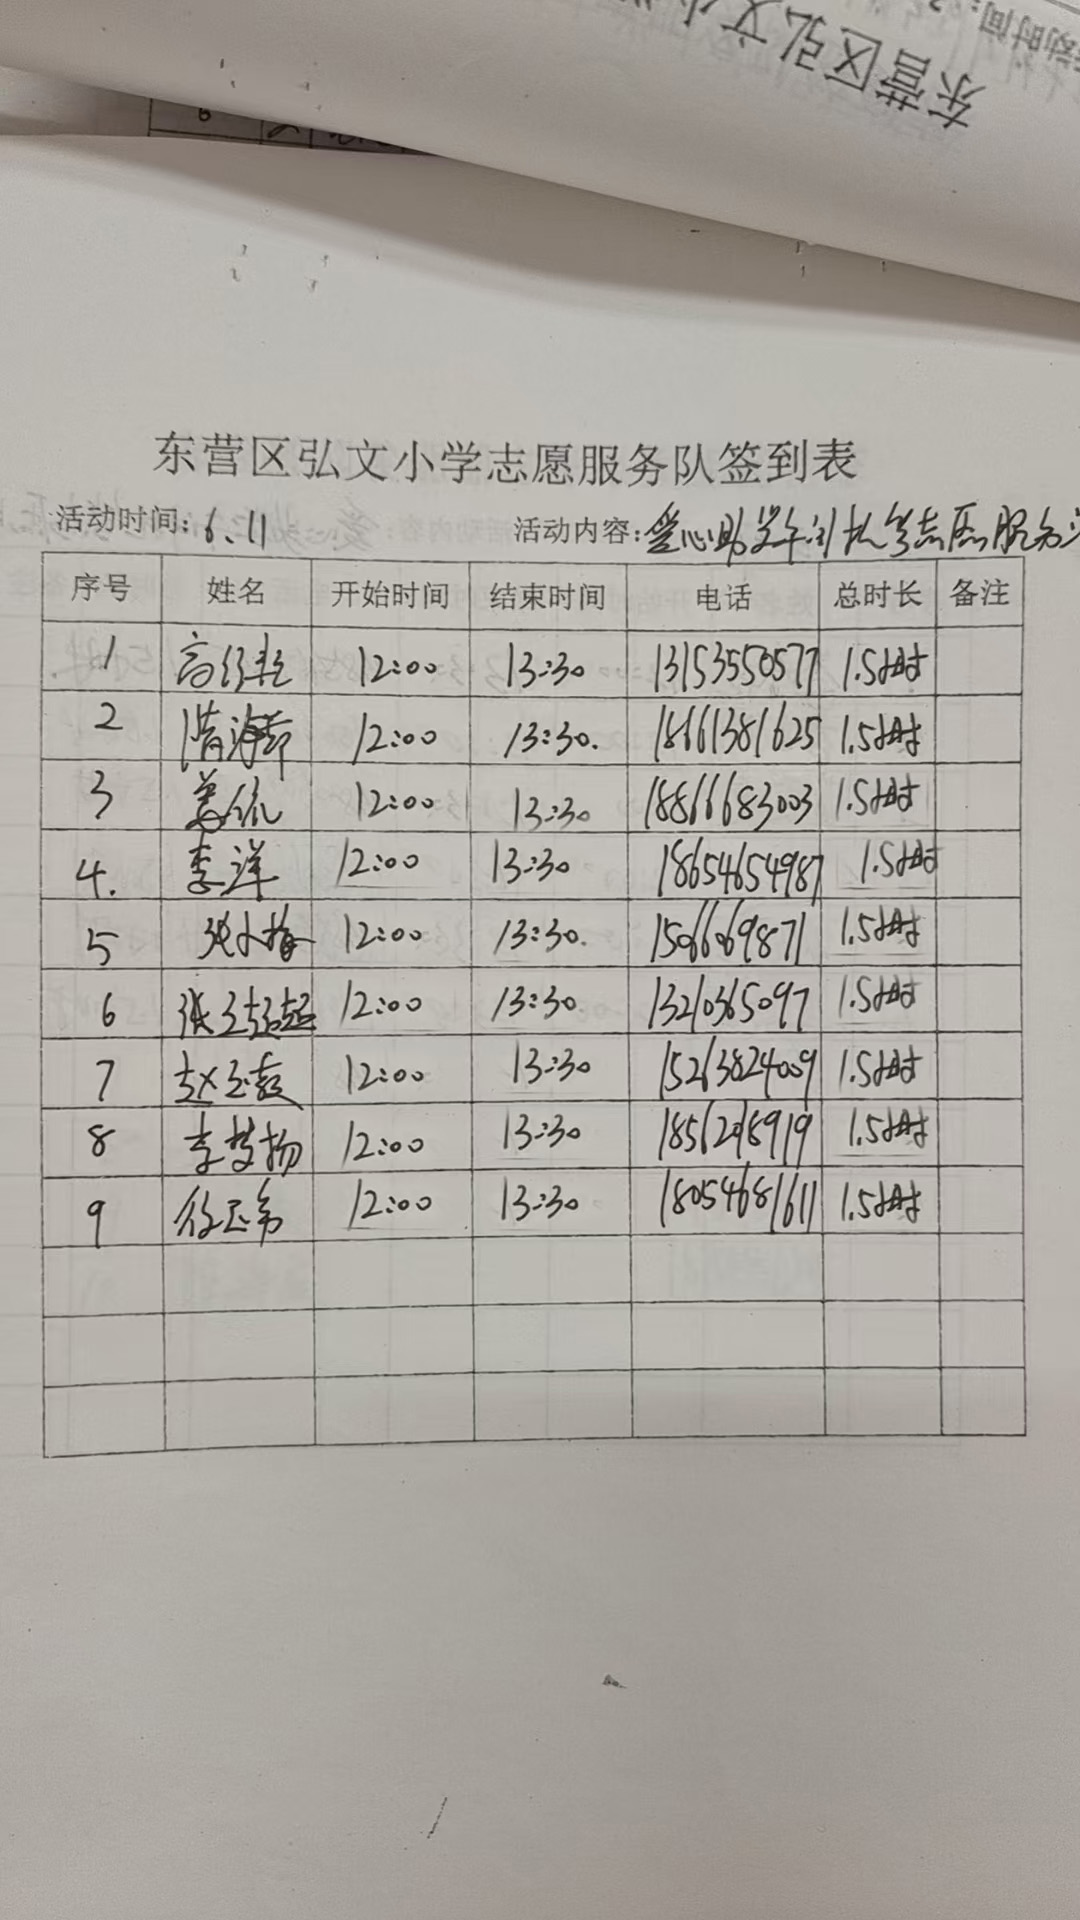 东营区弘文小
动时间:
6
东营区弘文小学志愿服务队签到表
活动时间: 6.11 活动内容: 爱心助学午间托管志愿服务
序号 姓名 开始时间 结束时间 电话 总时长 备注
1 12:00 13:30 13153550577 1.5小时
2 12:00 13:30. 18661381625 1.5小时
3 姜 12:00 13:30 18866683003 1.5小时
4. 李洋 12:00 13:30 18654654987 1.5小时
5 张小梅 12:00 13:30. 15066069871 1.5小时
6 张 12:00 13:30 13210365097 1.5小时
7 赵玉 12:00 13:30 15263824009 1.5小时
8 李梦扬 12:00 13:30 1.5小时
9 徐 12:00 13:30 18054681611 1.5小时